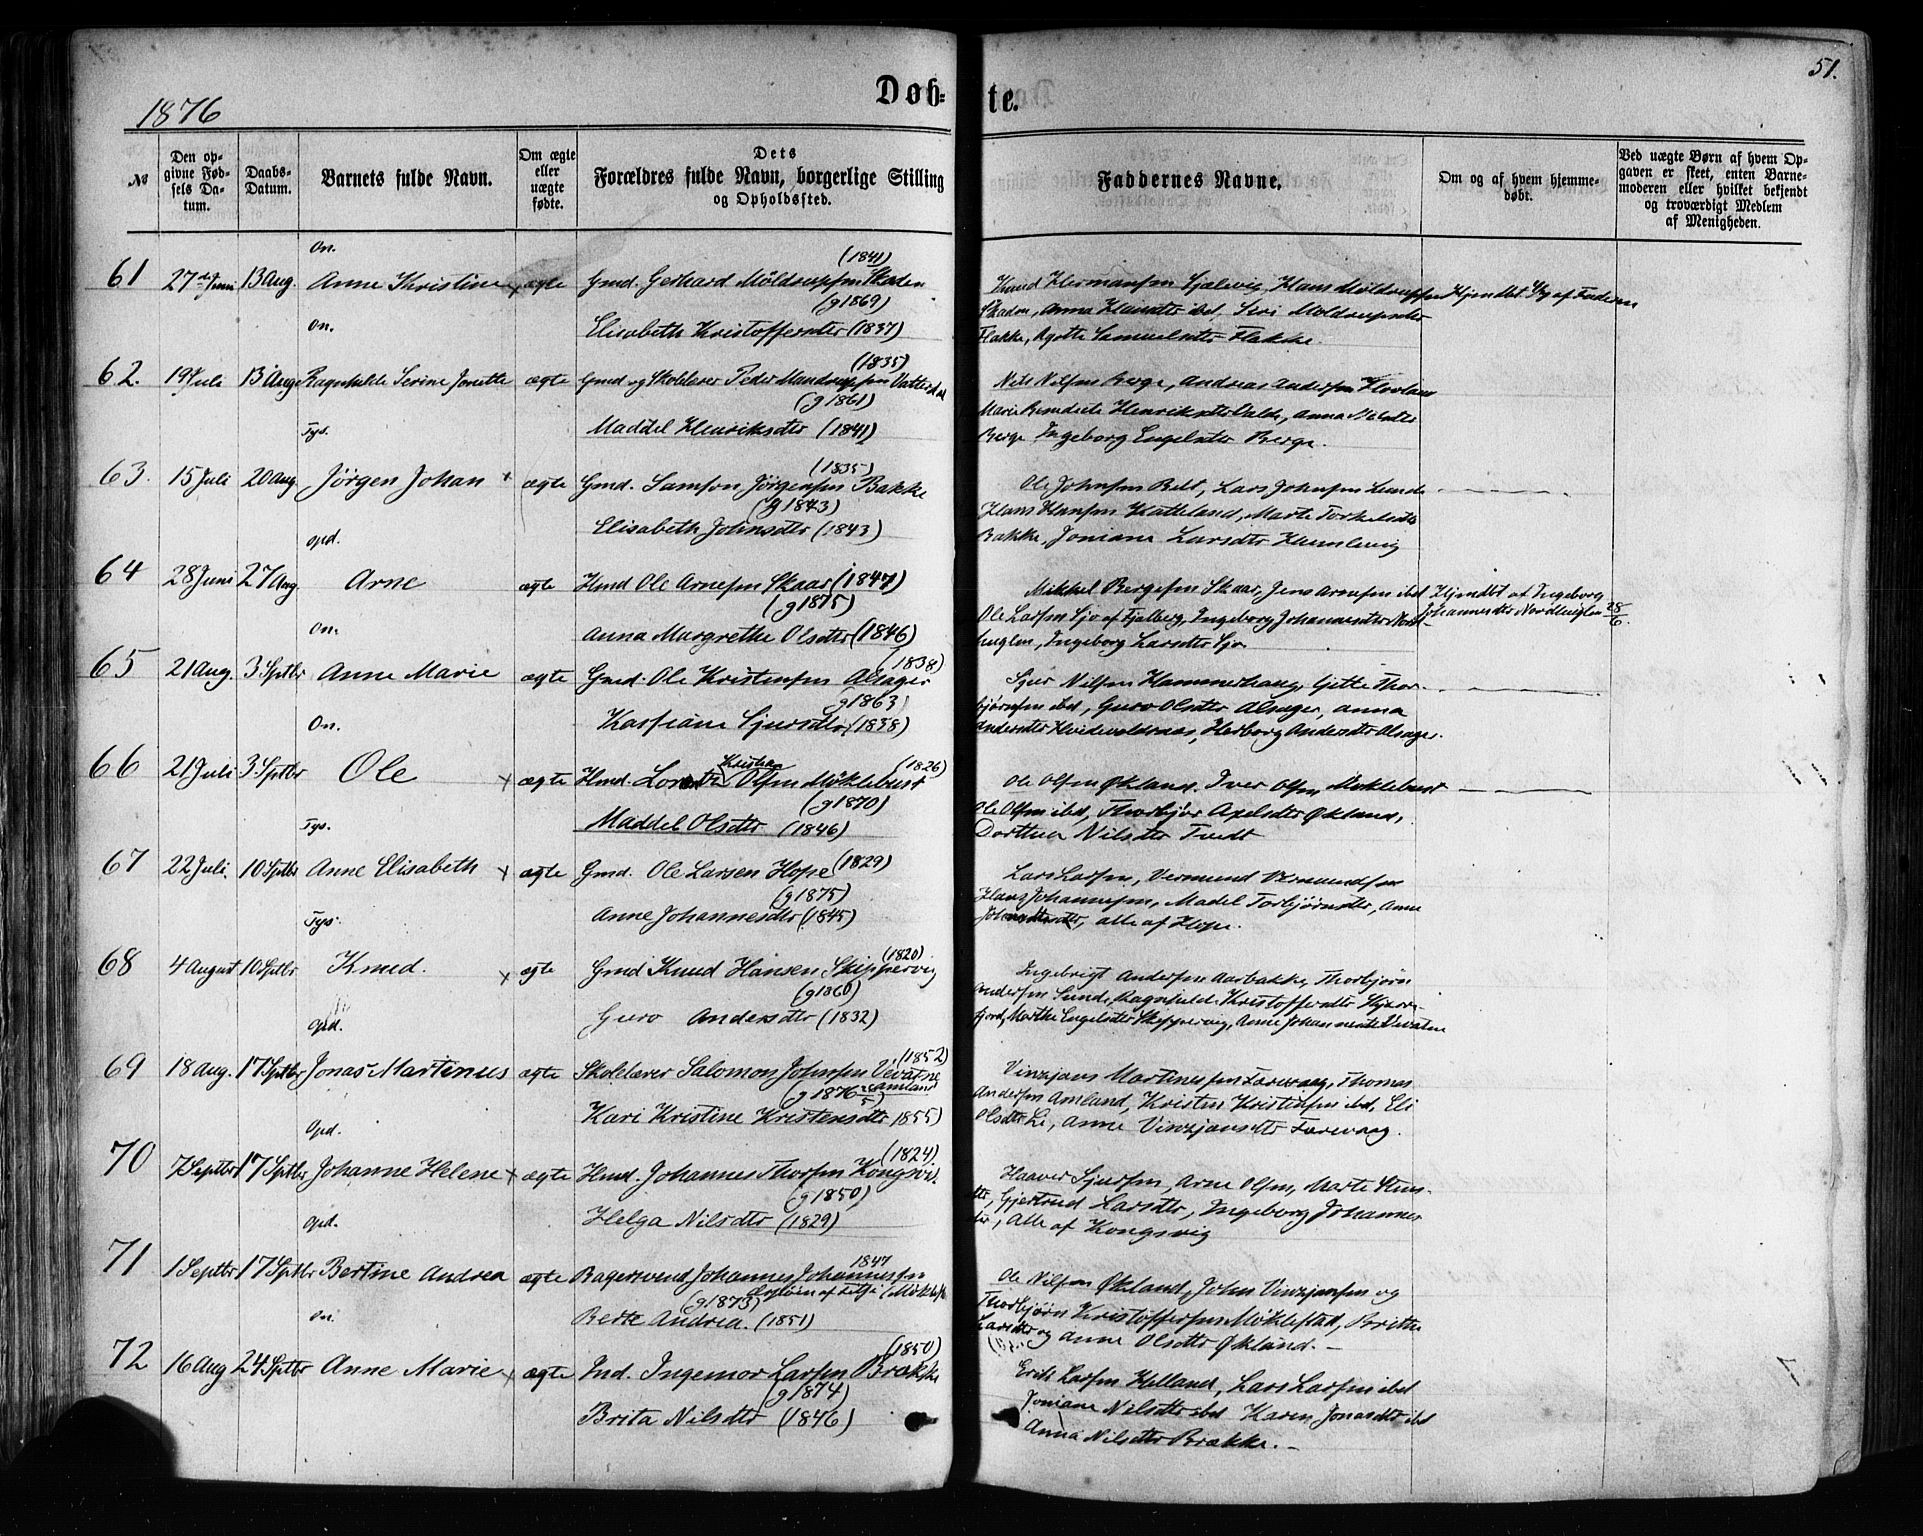 51.
1876
Døb-
te.
№
Den opgivne Fødsels Datum.
Daabs-Datum.
Barnets fulde Navn.
Om ægte eller uægte fødte.
Dets Forældres fulde Navn, borgerlige Stilling og Opholdssted.
Faddernes Navne.
Om og af hvem hjemmedøbt.
Ved uægte Børn af hvem Opgaven er skeet, enten Barnemoderen eller hvilket bekjendt og troværdigt Medlem af Menigheden.
On.
(1841)
61 27de Juni 13 Aug. Anne Kristine ægte Gmd. Gerhard Møldrupsen Skaden
(g 1869)
Elisabeth Kristoffersdtr (1837)
Knud Hermansen Hans Møldrupsen Hjemdbt af Faderen
Skaden, Anna ibd, Siri Moldrupsdtr
Flakke, Agatte Samuelsdtr Flakke.
On.
(1835)
62. 19 Juli 13 Aug Ragnhilde Serine Jonette ægte Gmd og Skolelærer Peder Mandrupsen Vatterdal
(g 1861)
Maddel Henriksdtr (1841)
Nels Nilsen Berge, Andreas Andersen Hovland
Marie Benedicte Henriksdtr Dale, Anna
Berge Ingeborg Engelsdtr Berge.
Tys.
(1835)
63. 15 Juli 20 Aug. Jörgen Johan ægte Gmd. Samson Jörgensen Bakke
(g 1843)
Elisabeth Johnsdtr (1843)
Ole Johnsen Belt, Lars Johnsen Lunde
Hans Hansen Katteland, Marte Torkelsdtr
Bakke, Joniane Larsdtr
Opd.
64 28 Juni 27 Aug. Arne ægte Hmd Ole Arnesen Skaar (1847)
(g 1875)
Anna Margrethe Olsdtr (1846)
Mikkel Bergesen Skaar, Jens Arnesen ibd Hjemdbt af Ingeborg
Ole Larsen Sjo af Fjelberg, Ingeborg Johannesdtr Nord- Johannesdtr Nordhuglen 28/6.
huglen, Ingeborg Larsdtr Sjo.
On.
(1838)
65 21 Aug. 3 Sptbr Anne Marie ægte Gmd. Ole Kristensen Alsager
g 1863)
Kastiane Sjursdtr (1838)
Sjur Nilsen Kammerhaug, Gitte Thor-
björnsen ibd, Guro Olsdtr Alsager, Anna
Andersdtr Hvidevoldnaas, Herborg Andersdtr Alsager.
On.
(1826)
66 21 Juli 3 Sptbr Ole ægte Hmd. Kristen Olsen Møklebust
(g 1870)
Maddel Olsdtr (1846)
Ole Olsen Økland, Iver Olsen, Møklebust
Ole Olsen ibd, Thorbjör Axelsdtr Økland,
Dorthea Nilsdtr Tvedt
Tys.
67 22 Juli. 10 Sptbr Anne Elisabeth ægte Gmd. Ole Larsen Hope (1829)
(g 1875)
Anne Johannesdtr (1845)
Lars Larsen, Vermund Vermundsen
Hans Johannesen, Madel Torbjørnsdtr, Anne
alle af Hope.
Tys.
(1820)
68 4 August 10 Sptbr Knud. ægte Gmd Knud Hansen Skippervig
(g 1860)
Guro Andersdtr (1832)
Ingebrigt Andersen Aarbakke, Thorbjörn
Andersen Lunde, Ragnhild Kristoffersdtr
fjord, Marthe Engelsdtr Skippervig, Anne Johannesdtr Vevatne
Opd.
(1852)
69 18 Aug. 17 Sptbr Jonas Martinus ægte Skolelærer Salomon Johnsen Vevatne
(g 1876 28/5) Amland
Kari Kristine Kristensdtr 1855)
Vinzjans Martinussen Farevaag, Thomas
Andersen Amland, Kristen Kristensen ibd, Eli
Olsdtr Li, Anne Vinzjansdtr Farevaag.
Opd.
(1824)
70 7 Septbr 17 Sptbr Johanne Helene ægte Hmd. Johannes Thorsen Kongsvi.
(g 1850)
Helga Nilsdtr (1829)
Haaver Sjursen, Arne Olsen, Marte
dtr, Gjertrud Larsdtr, Ingeborg Johannes
dtr, Alle af Kongsvig
Opd.
1847
71 1 Septbr 17 Sptbr Bertine Andrea ægte Bagersvend Johannes Johannessen
(g 1873)
Berte Andrea. (1851)
Ole Nilsen Økland, John Vinzjansen og
Thorbjörn Kristoffersen Møklestad, Britta
Larsdtr og Anne Olsdtr Økland. —
On.
(1850)
72 16 Aug 24 Sptbr Anne Marie ægte Ind. Ingemor Larsen Brække
(g 1874)
Brita Nilsdtr (1846)
Erik Larsen Helland, Lars Larsen ibd
Joniane Nilsdtr ibd Karen Jonasdtr ibd
Anna Nilsdtr Brække. —